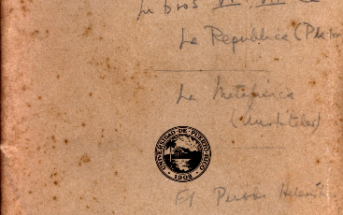 Libros VI - VII de
La República (Platón
La Metafísica
(Aristóteles)
UNIVERSIDAD DE PUERTO RICO
1903
El Pueblo